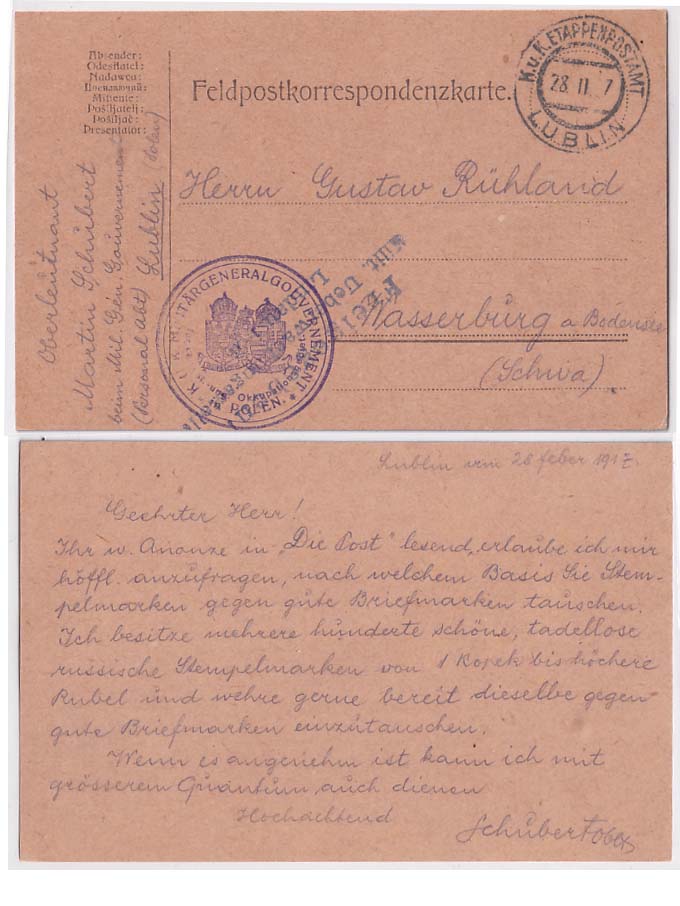 Absender:
Odesílatel:
Nadawca:
Посилаючий:
Mittente:
Pošiljatelj:
Pošiljač:
Presentator:
Oberleutnant
Martin Schubert
beim Mil. Gen. Gouvernement
(Personal Abt) Lublin (Polen)
Feldpostkorrespondenzkarte.
K.u.K. ETAPPENPOSTAMT
28 II 7
LUBLIN
Herrn Gustav Rühland
Wasserburg a Bodensee
(Schwa)
MILITÄRGENERALGOUVERNEMENT
Okkupationsgebiet
in POLEN.
Lublin am 28 feber 1917.
Geehrter Herr!
Ihr w. Anonze in "Die Post" lesend, erlaube ich mir
höffl. anzufragen, nach welchem Basis Sie Stem-
pelmarken gegen gute Briefmarken tauschen.
Ich besitze mehrere hunderte schöne, tadellose
russische Stempelmarken von 1 Kopek bis höchere
Rubel und wehre gerne bereit dieselbe gegen
gute Briefmarken einzutauschen.
Wenn es angenehm ist kann ich mit
grösserem Quantum auch dienen
Hochachtend
Schubert Oblt